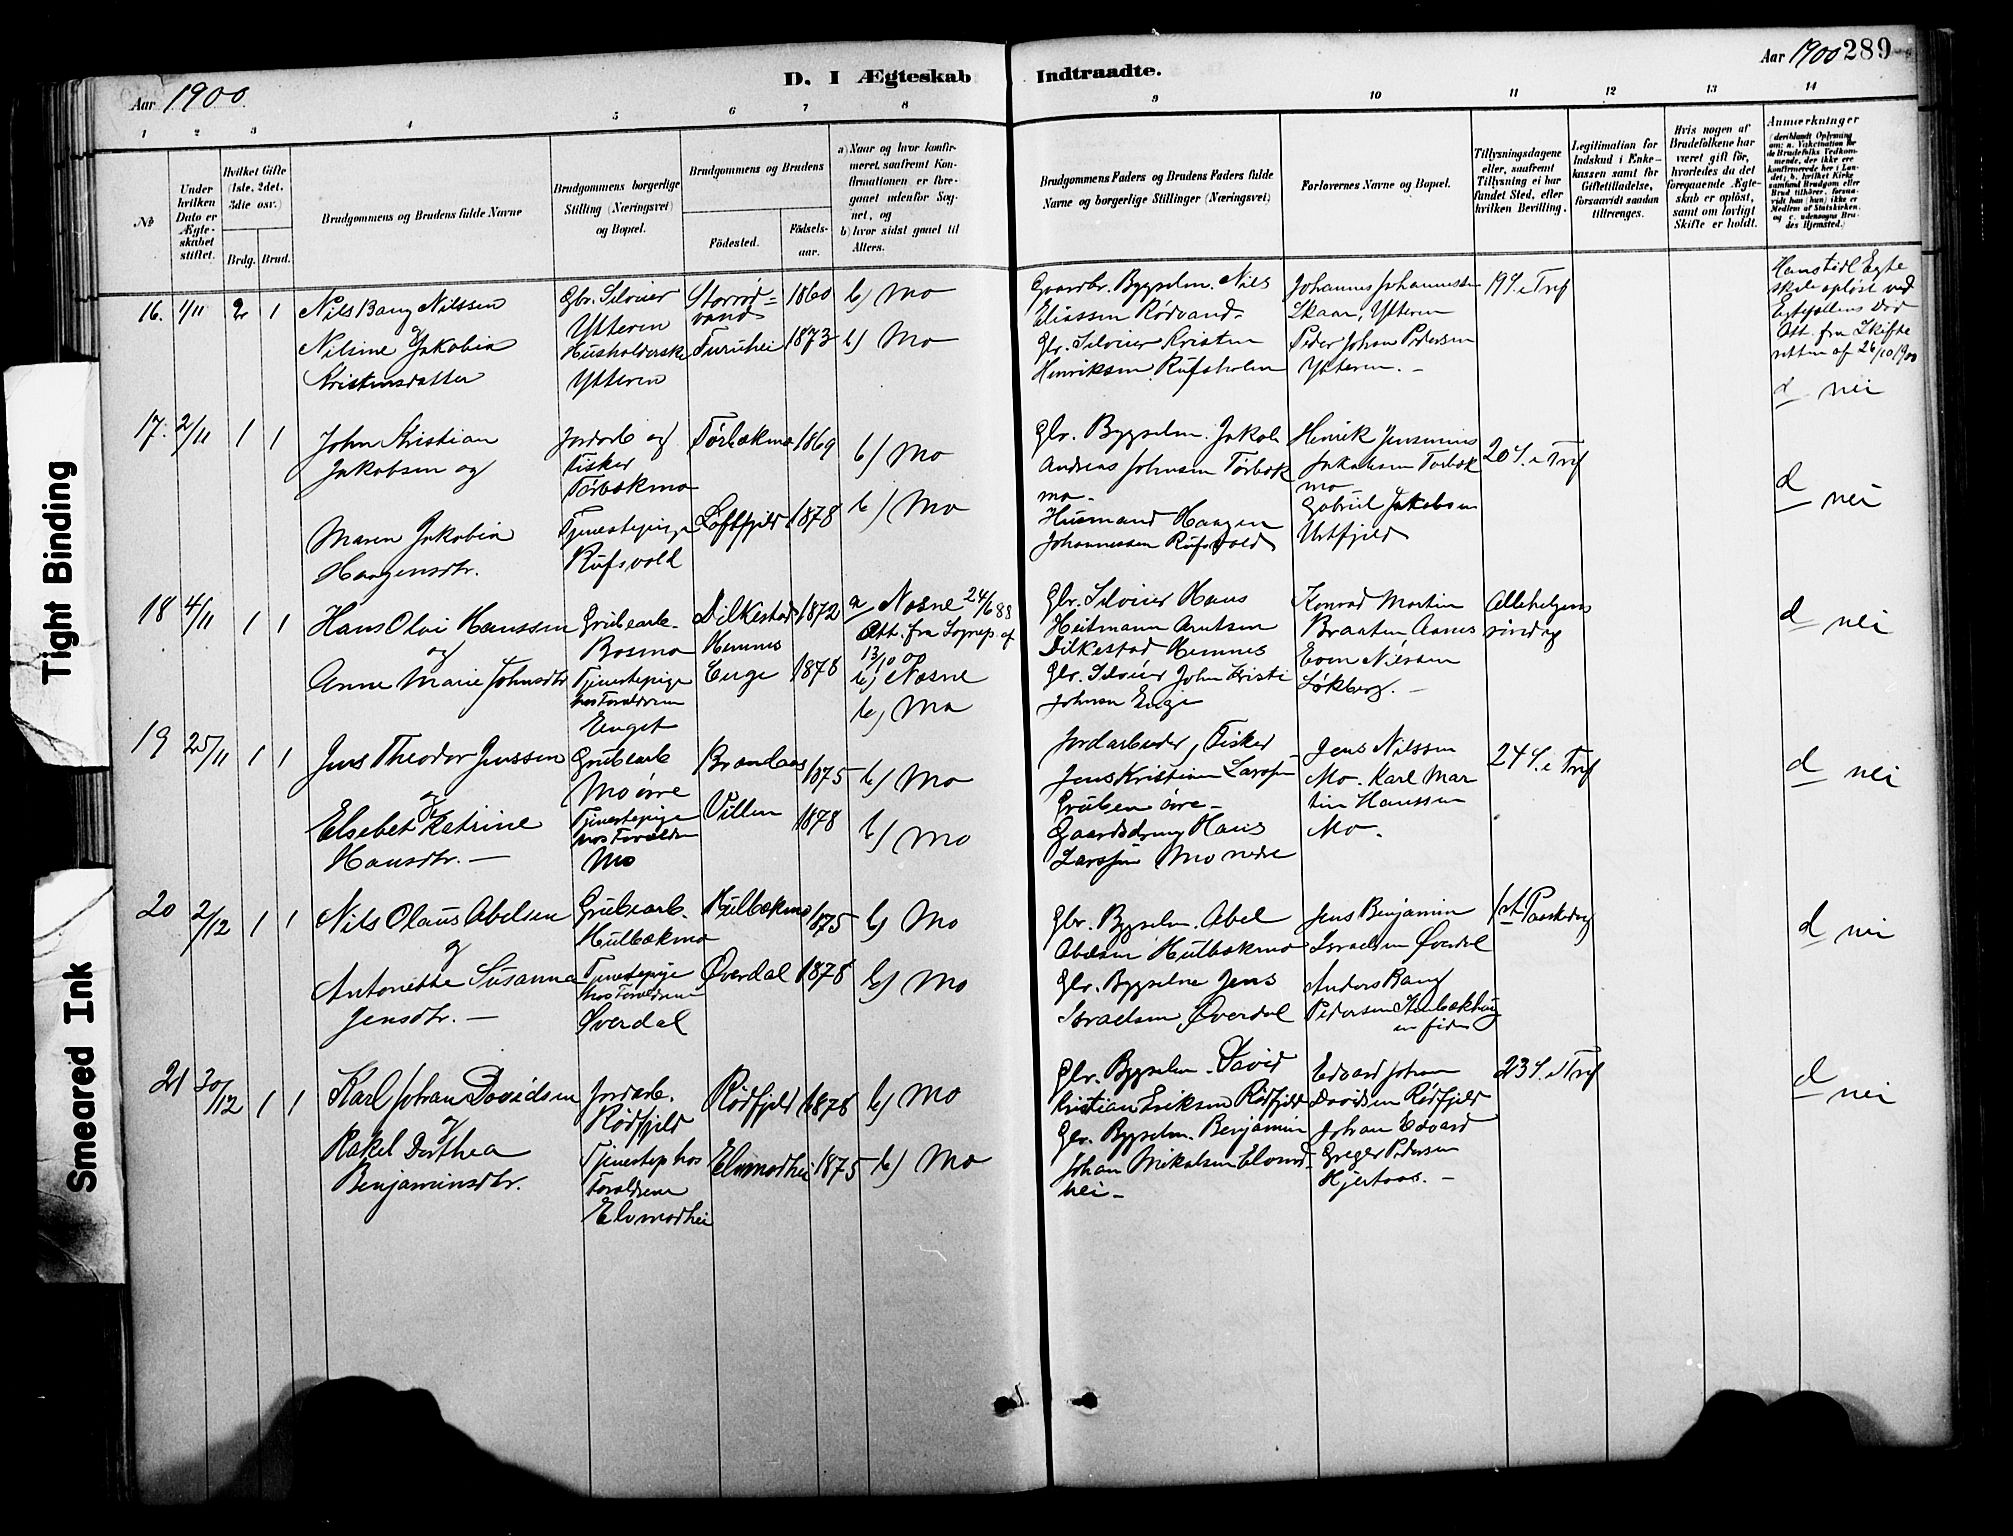 Aar 1900
D. I Ægteskab
Indtraadte.
Aar 1900 289
1 2 3 4 5 6 7 8 9 10 11 12 13 14
No
Under hvilken Dato er Ægteskabet stiftet.
Hvilket Gifte (1ste, 2det, 3die osv.)
Brdg. Brud.
Brudgommens og Brudens fulde Navne
Brudgommens borgerlige Stilling (Næringsvei) og Bopæl.
Brudgommens og Brudens
Fødested.
Fødsels-aar.
a) Naar og hvor konfirmeret, saafremt Konfirmationen er foregaaet udenfor Sognet, og
b) hvor sidst gaaet til Alters.
Brudgommens Faders og Brudens Faders fulde Navne og borgerlige Stillinger (Næringsvei)
Forlovernes Navne og Bopæl.
Tillysningsdagene eller, saafremt Tillysning ei har fundet Sted, efter hvilken Bevilling.
Legitimation for Indskud i Enkekassen samt for Giftetilladelse, forsaavidt saadan tiltrænges.
Hvis nogen af Brudefolkene har været gift før, hvorledes da det foregaaende Ægteskab er opløst, samt om lovligt Skifte er holdt.
Anmærkninger
16. 1/11 2 1
Nils Bang Nilssen
og
Nilsine Jakobia
Kristensdatter
Gbr. Selveier
Ytteren
Husholderske
Ytteren
Storrød=
vand
Furuhei
1860
1873
b) Mo
b) Mo
Gaardbr. Bygselm. Nils
Eliassen Rødvand
Gbr. Selveier Kristen
Henriksen Rufsholm
Johannes Johannessen
Skaar, Ytteren
Peder Johan Pedersen
Ytteren. -
19 S. e Tref
Hans tidl Egte
skab opløst ved
Egtefællens Død
Att. fra Skifte
retten af 26/10 1900
d nei
17. 2/11 1 1
John Kristian
Jakobsen og
Maren Jakobia
Haagensdtr.
Jordarb og
Fisker
Tørbækmo
Tjenestepige
Rufsvold
Tørbækmo
Loftfjeld
1869
1878
b) Mo
b) Mo
Gbr. Bygselm. Jakob
Andreas Johnsen Tørbæk
mo -
Husmand Haagen
Johannessen Rufsvold
Henrik Jensenius
Jakobsen Tørbæk
mo
Gabriel Jakobsen
Urtfjeld
20 S. e Tref
d nei
18 4/11 1 1
Hans Olai Hanssen
og
Anne Marie Johnsdtr
Grubearb.
Rosmo
Tjenestepige
hos Forældrene
Enget
Silkestad
Hemnes
Enge
1872
1878
a Nesne 24/6 88
Att. fra Sognep. af
13/10 00
b) Nesne
b) Mo
Gbr. Selveier Hans
Heitmann Arntsen
Silkestad Hemnes
Gbr. Selveier John Kristi
Johnsen Enge
Konrad Martin
Braaten Aanes
Even Nilssen
Løkberg. -
Allehelgens
søndag
d nei
19 25/11 1 1
Jens Theodor Jenssen
og
Elsebet Katrine
Hansdtr. -
Grubearb
Mo øvre
Tjenestepige
hos Forældre
Mo
Brandaas
Villen
1875
1878
b) Mo
b) Mo
Jordarbeider, Fisker
Jens Kristian Larssen
Gruben øvre -
Gaardsdreng Hans
Larssen Mo nedre
Jens Nilssen
Mo. Karl Mar
tin Hanssen
Mo.
24 S. e Tref
d nei
20 2/12 1 1
Nils Claus Abelsen
og
Antonette Susanna
Jensdtr. -
Grubearb.
Hulbækmo
Tjenestepige
hos Forældrene
Øverdal
Hulbækmo
Øverdal
1875
1878
b) Mo
b) Mo
Gbr. Bygselm. Abel
Abelsen Hulbækmo
Gbr. Bygselm Jens
Israelsen Øverdal
Jens Benjamin
Israelsen Øverdal
Anders Bang
Pedersen
1st Paaskedag
d nei
21 30/12 1 1
Karl Johan Davidsen
og
Rakel Dorthea
Benjaminsdtr.
Jordarb.
Rødfjeld
Tjenestep hos
Forældrene
Elvmodhei
Rødfjeld
Elvmodhei
1878
1875
b) Mo
b) Mo
Gbr. Bygselm. David
Kristian Eriksen Rødfjeld
Gbr. Bygselm. Benjamin
Johan Mikalsen Elvmod
hei -
Edvard Johan
Davidsen Rødfjeld
Johan Edvard
Greger Pedersen
Hjertaas. -
23 S. e Tref
d nei
Tight Binding
Smeared Ink